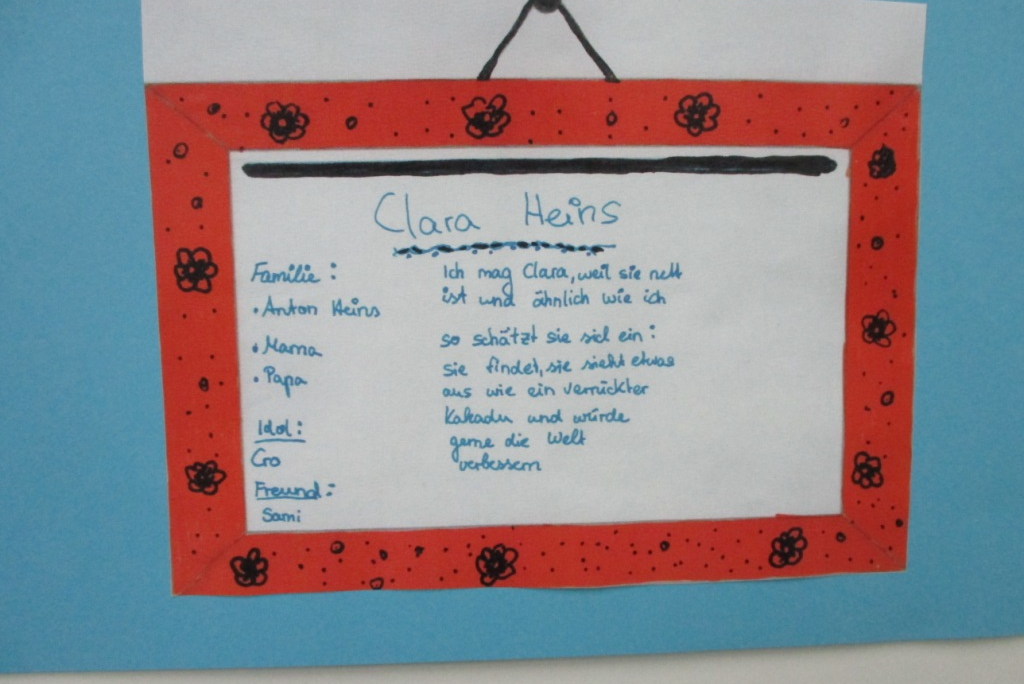 Clara Heins
Familie:
• Anton Heins
• Mama
• Papa
Idol:
Cro
Freund:
Sami
Ich mag Clara, weil sie nett
ist und ähnlich wie ich
so schätzt sie sich ein:
sie findet, sie sieht etwas
aus wie ein verrückter
Kakadu und würde
gerne die Welt
verbessern